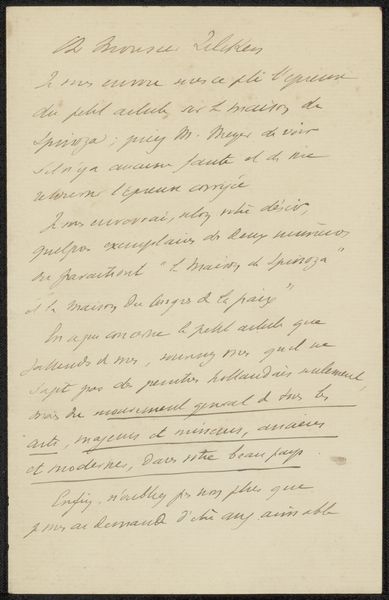 Monsieur Zilcken
Je vous envoie sous ce pli l'épreuve
du petit article sur la maison de
Spinoza; priez M. Meyer de voir
s'il n'y a aucune faute et de me
retourner l'épreuve corrigée
Je vous enverrai, selon votre désir,
quelques exemplaires des deux numéros
où paraitront "la Maison de Spinoza"
et la maison du Congrès de la paix"
En ce qui concerne le petit article que
j'attends de vous, souvenez vous qu'il ne
s'agit pas des peintres hollandais seulement,
mais du mouvement general de tous les
arts, majeurs et mineurs, anciens
et modernes, dans votre beau pays.
Enfin, n'oubliez pas non plus que
je vous ai demandé d'être assez aimable